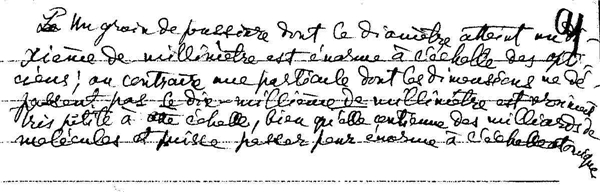 Un grain de poussière dont le diamètre atteint un di-
xième de millimètre est énorme à l'échelle des opti
ciens ; au contraire une particule dont les dimensions ne dé-
passent pas le dix-millième de millimètre est vraiment
très petite à cette échelle, bien qu'elle contienne des milliards de
molécules et puisse passer pour énorme à l'échelle atomique